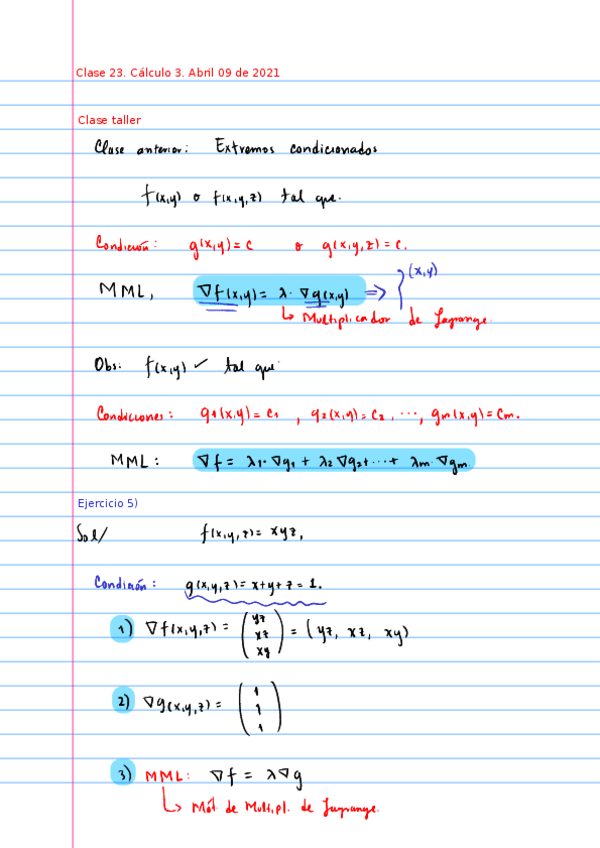 Clase 23. Cálculo 3. Abril 09 de 2021
Clase taller
Clase anterior: Extremos condicionados
f(x,y) o f(x,y,z) tal que.
Condición: g(x,y) = c o g(x,y,z) = c.
MML, ∇f(x,y) = λ·∇g(x,y) => } (x,y)
↳ Multiplicador de Lagrange.
Obs: f(x,y) ✓ tal que:
Condiciones: g1(x,y) = c1 , g2(x,y) = c2 , ..., gm(x,y) = cm.
MML: ∇f = λ1·∇g1 + λ2 ∇g2 + ... + λm·∇gm.
Ejercicio 5)
Sol/ f(x,y,z) = xyz,
Condición: g(x,y,z) = x+y+z = 1.
1) ∇f(x,y,z) = (yz xz xy) = (yz, xz, xy)
2) ∇g(x,y,z) = (1 1 1)
3) MML: ∇f = λ∇g
↳ Mét de Multipl. de Lagrange.